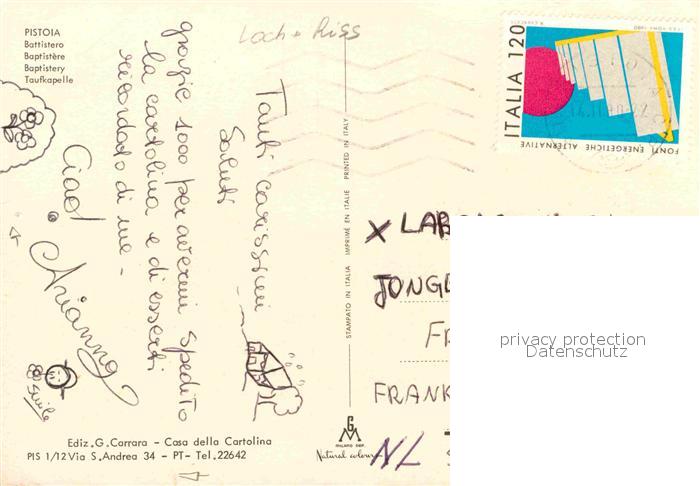 PISTOIA
Battistero
Baptistère
Baptistery
Taufkapelle
Loch + Riss
Tanti carissimi
Saluti
grazie 1000 per avermi spedito
la cartolina e di esserti
ricordato di me -
Ciao!
Arianna
smile
Ediz. G. Carrara - Casa della Cartolina
PIS 1/12 Via S. Andrea 34 - PT - Tel. 22642
STAMPATO IN ITALIA IMPRIMÉ EN ITALIE PRINTED IN ITALY
MILANO DEP.
Natural colour
ITALIA 120
FONTI ENERGETICHE ALTERNATIVE
X LAR
JONGE
FR
FRANK
NL
privacy protection
Datenschutz